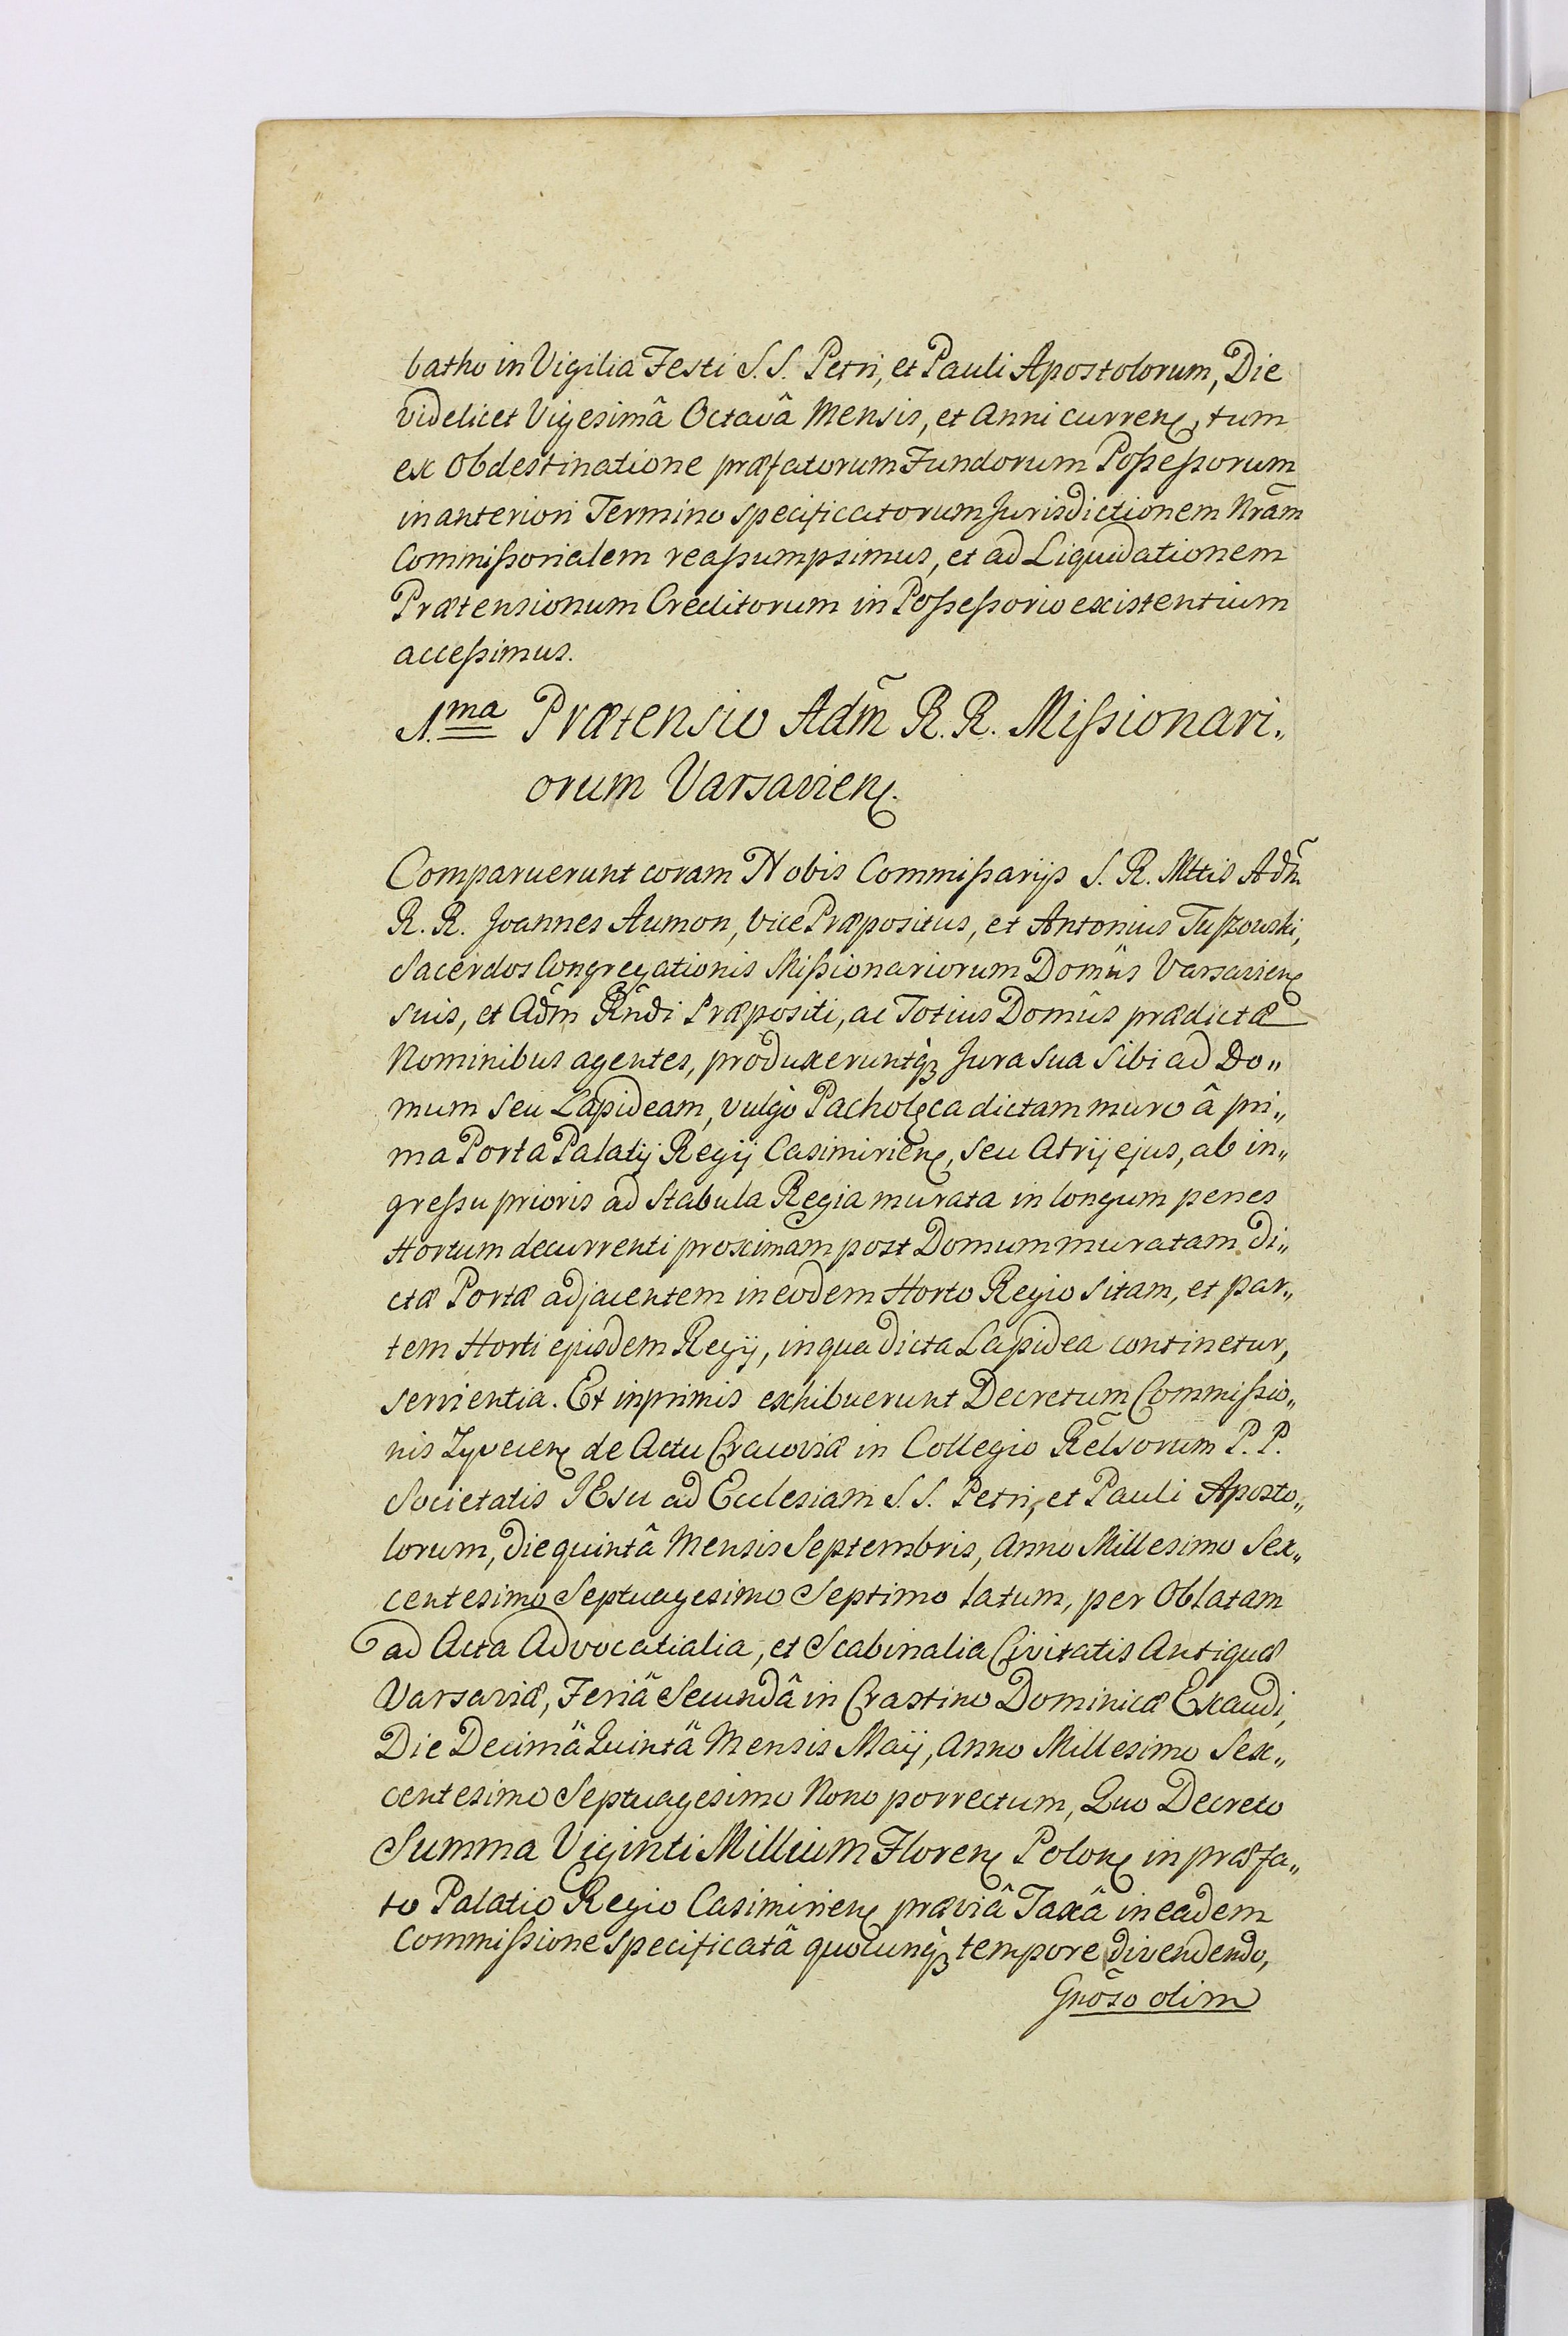 batho in Vigilia Festi S.S. Petri, et Pauli Apostolorum, Die
videlicet Vigesimâ Octavâ Mensis, et Anni curren, tum
ex Obdestinatione præfatorum Fundorum Poßeßorum
in anteriori Termino specificatorum Jurisdictionem Nrãm
Commißorialem reaßumpsimus, et ad Liquidationem
Prætensionum Creditorum in Poßeßorio existentium
acceßimus.
1.ma Prætensio Adm̃ R. R. Mißionari„
orum Varsavien.
Comparuerunt coram Nobis Commißarijs S. R. Mttis Adm̃
R. R. Joannes Aumon, Vice Præpositus, et Antonius Tußzowski,
Sacerdos Congregationis Mißionariorum Domûs Varsavien
suis, et Adm̃ Rñdi Præpositi, ac Totius Domûs prædictæ
Nominibus agentes, produxeruntqꝫ Jura sua sibi ad Do„
mum seu Lapideam, vulgò Pacholęca dictam muro â pri„
ma Porta Palatij Regij Casimirien, seu Atrij ejus, ab in„
greßu prioris ad Stabula Regia murata in longum penes
Hortum decurrenti proximam post Domum muratam di„
ctæ Portæ adjacentem in eodem Horto Regio sitam, et par„
tem Horti ejusdem Regij, in qua dicta Lapidea continetur,
servientia. Et inprimis exhibuerunt Decretum Commißio„
nis Zyvecien de Actu Cracoviæ in Collegio Rel̃sorum P. P.
Societatis JEsu ad Ecclesiam S.S. Petri, et Pauli Aposto„
lorum, die quintâ Mensis Septembris, Anno Millesimo Sex„
centesimo Septuagesimo Septimo latum, per Oblatam
ad Acta Advocatialia, et Scabinalia Civitatis Antiquæ
Varsaviæ, Feriâ Secundâ in Crastino Dominicæ Exaudi,
Die Decimâ Quintâ Mensis Maij, Anno Millesimo Sex„
centesimo Septuagesimo Nono porrectum, Quo Decreto
Summa Viginti Millium Floren Polon in præfa„
to Palatio Regio Casimirien præviâ Taxâ in eadem
Commißione specificatâ quocunqꝫ tempore divendendo,
Gnõso olim